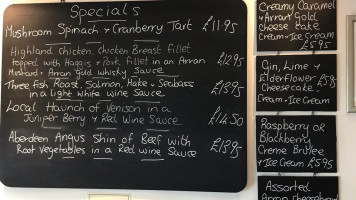 Specials
Mushroom Spinach & Cranberry Tart £11.95
Highland Chicken. Chicken Breast fillet
topped with Haggis & Pork fillet in an Arran
Mustard & Arran Gold Whisky Sauce £12.95
Three fish Roast, Salmon, Hake & Seabass
in a light white wine Sauce £13.95
Local Haunch of Venison in a
Juniper Berry & Red Wine Sauce £14.50
Aberdeen Angus Shin of Beef with
Root Vegetables in a Red wine Sauce £13.95
Creamy Caramel
& Arran Gold
Cheese Cake
Cream or Ice Cream
£5.95
Gin, Lime &
Elderflower
Cheesecake
Cream or Ice Cream
Raspberry OR
Blackberry
Creme Brulee
& Ice Cream £5.95
Assorted
Arran Cheeseboard